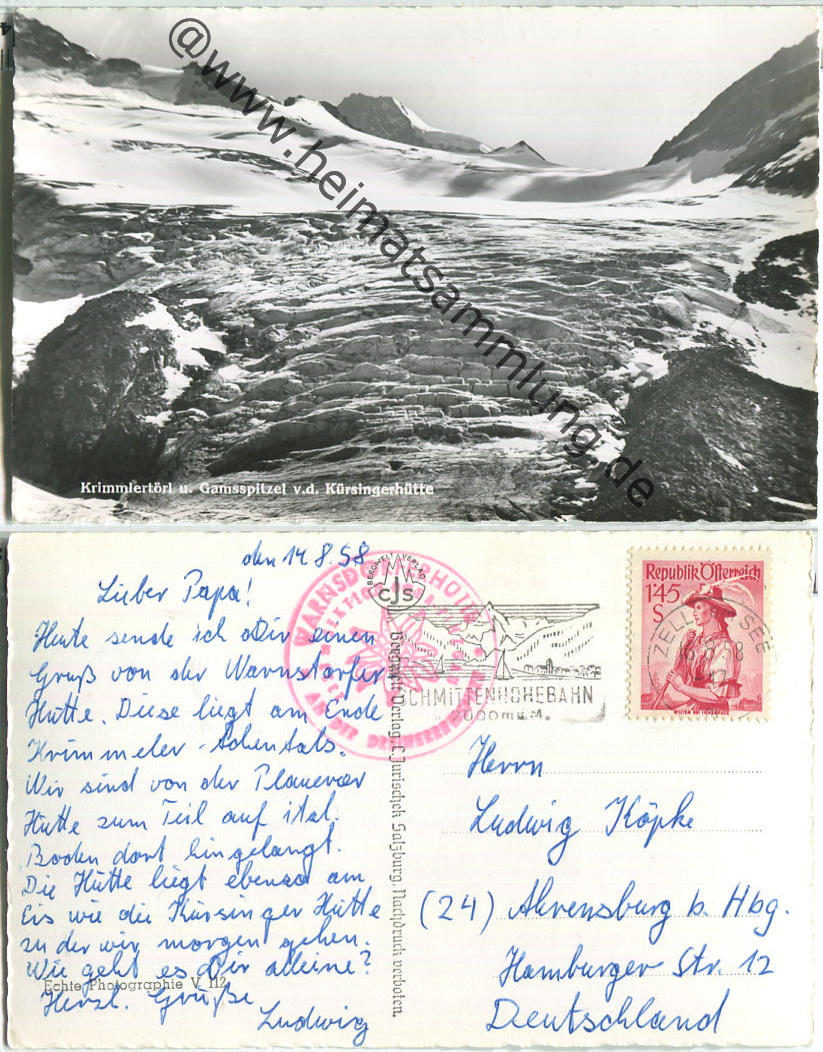 @www.heimatsammlung.de
Krimmlertörl u. Gamsspitzel v.d. Kürsingerhütte
den 14.8.58
Lieber Papa!
Heute sende ich Dir einen
Gruß von der Warnstorfer
Hütte. Diese liegt am Ende
Krimmeler-Achentals.
Wir sind von der Plauener
Hütte zum Teil auf ital.
Boden dort hingelangt.
Die Hütte liegt ebenso am
Eis wie die Kürsinger Hütte
zu der wir morgen gehen.
Wie geht es Dir alleine?
Echte Photographie V 112
Herzl. Grüße
Ludwig
BERGWELT VERLAG
CJS
Bergwelt-Verlag C. Jurischek Salzburg. Nachdruck verboten.
SCHMITTENHÖHEBAHN
2000 m ü. M.
Republik Österreich
1'45
S
ZELL SEE
Herrn
Ludwig Köpke
(24) Ahrensburg b. Hbg.
Hamburger Str. 12
Deutschland